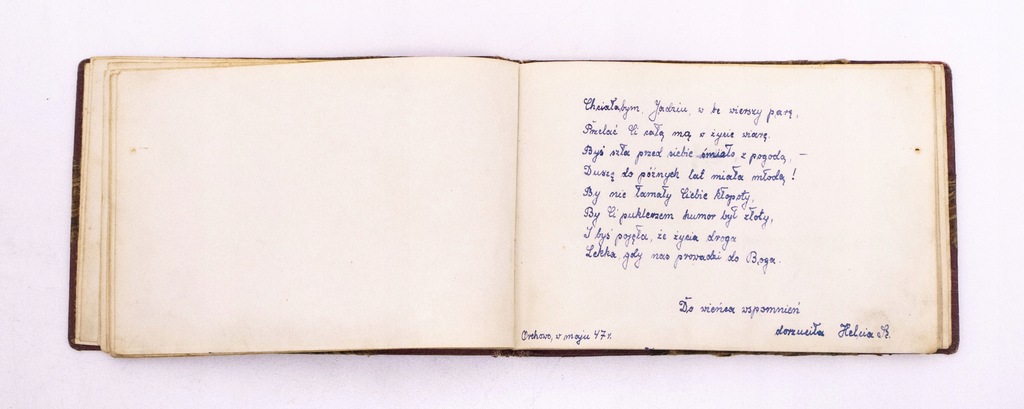 Chciałabym, Jadziu, w te wierszy parę,
Przelać Ci całą mą w życie wiarę.
Byś szła przed siebie śmiało z pogodą, –
Duszę do późnych lat miała młodą!
By nie łamały Ciebie kłopoty,
By Ci puklerzem humor był złoty,
I byś pojęła, że życia droga
Lekka, gdy nas prowadzi do Boga.
Do wieńca wspomnień
dorzuciła Helcia
w maju 47 r.